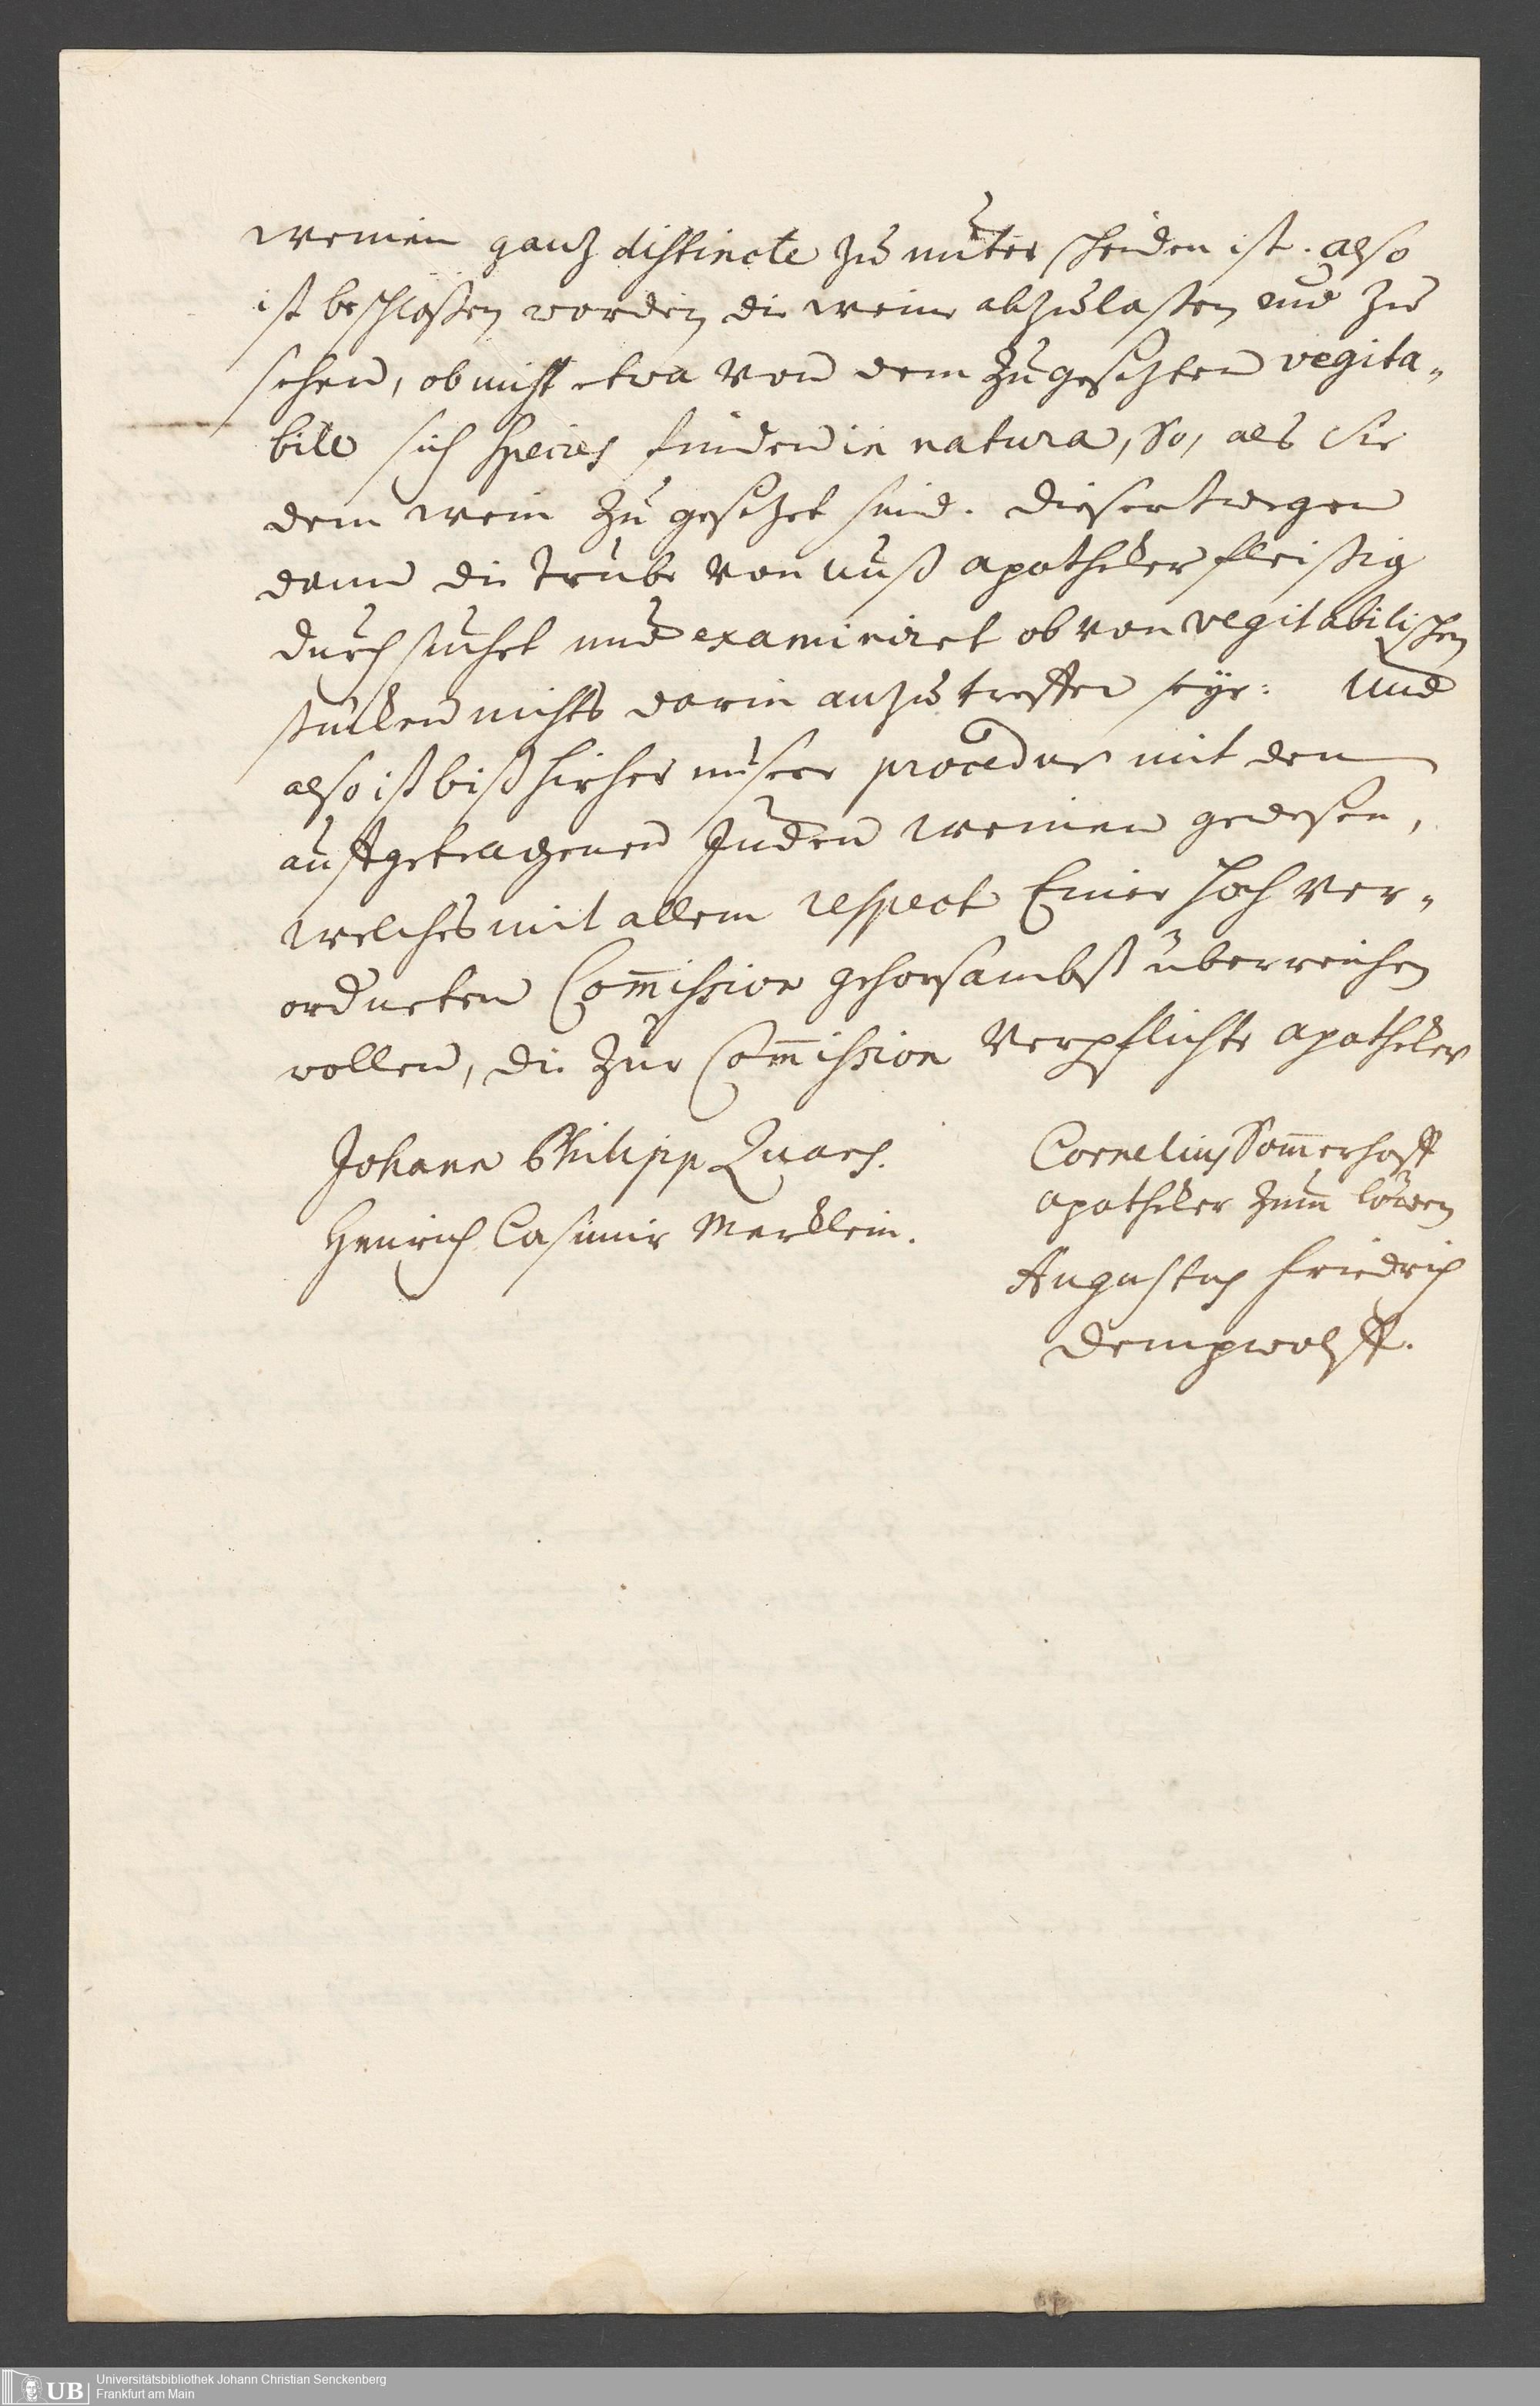 weinen ganz distincte zu unter scheiden ist. also
ist beschloßen worden die weine abzulaßen und zu
sehen, ob nicht etwa von dem zugesetzten vegita„
bile sich species finden in natura, so, als sie
dem wein zu gesetzet sind. dießertwegen
dann die trube von unß apotheker fleißig
durch suchet und examiniret ob von vegitabilischen
stucken nichts darin anzutreffen seye: Und
also ist biß hieher unsere procedur mit den
auffgetragenen Juden weinen gewesen,
welches mit allem respect Einer hoch ver„
ordneten Com̅ission gehorsambst überreichen
wollen, die zur Com̅ission verpflichte apotheker
Johann Philipp
Henrich Casimir Mercklein.
Cornelius Som̅erhoff
apotheker zum̅ löwen
Augustus friedrich
Dempwolff.
UB
Universitätsbibliothek Johann Christian Senckenberg
Frankfurt am Main